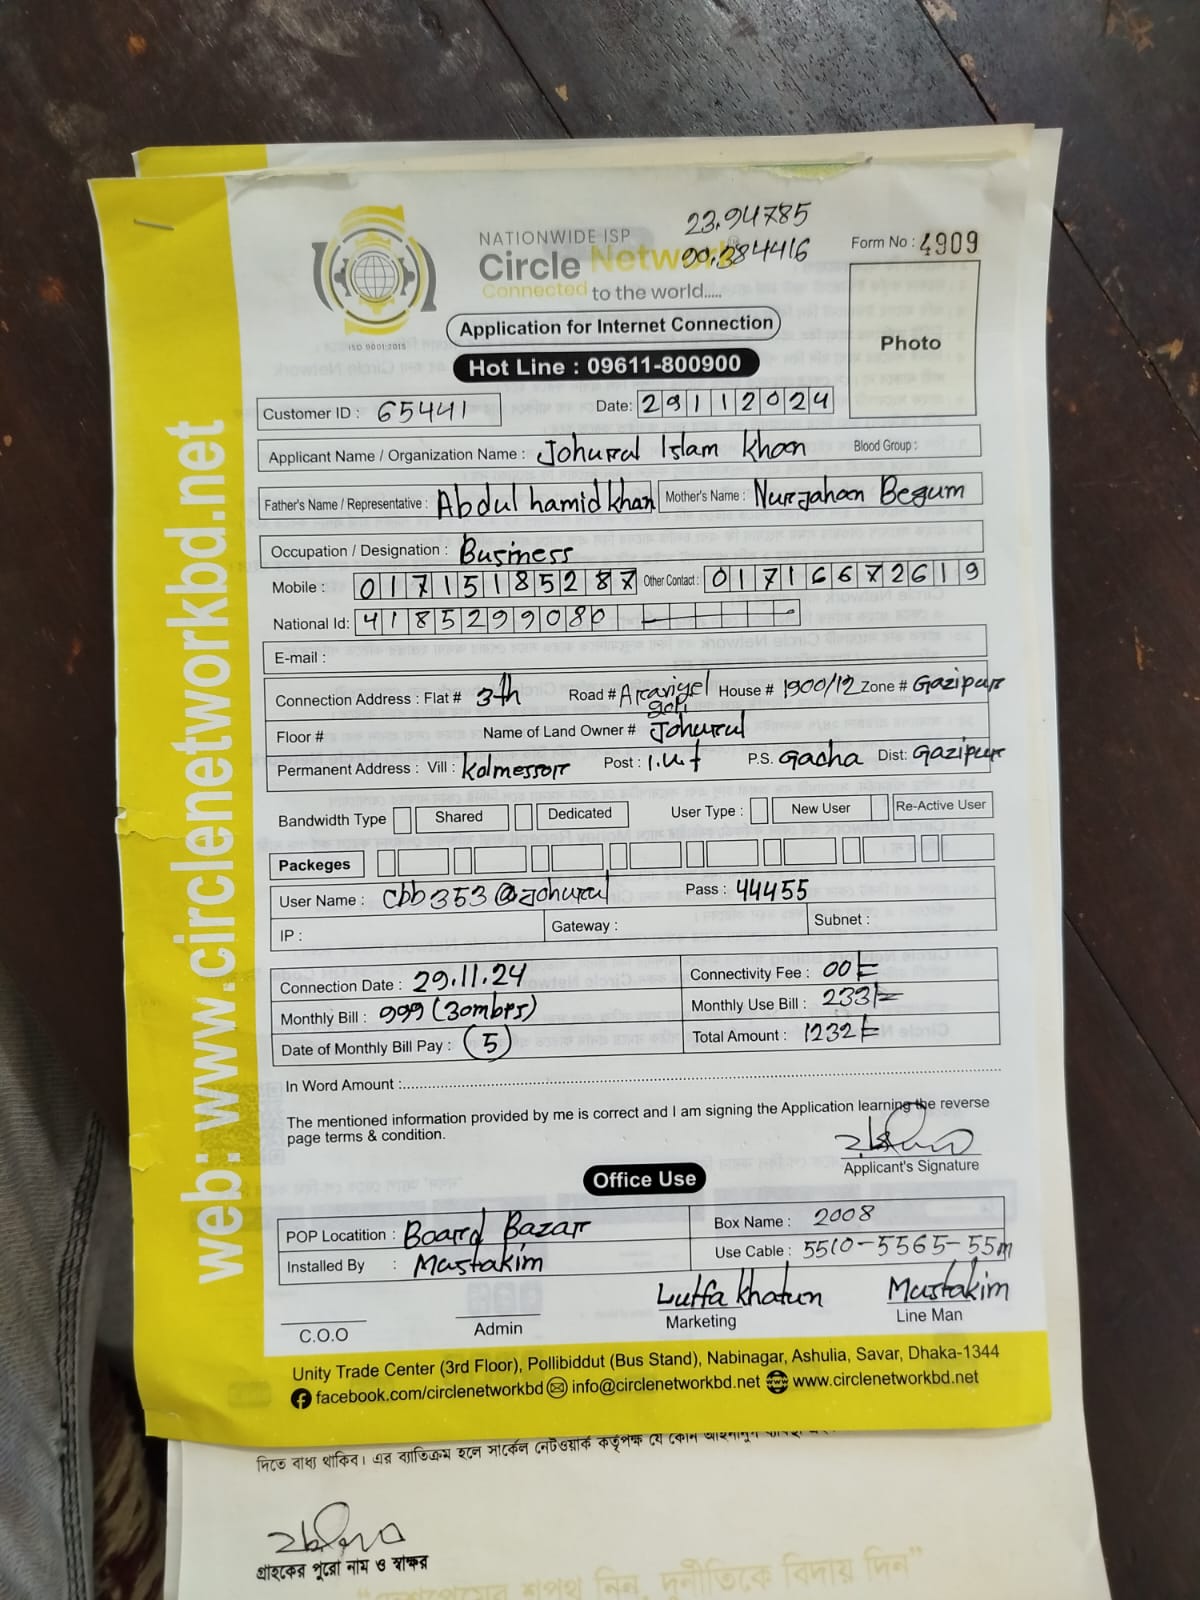 23.94785
NATIONWIDE ISP
90.384416
Form No : 4909
Circle Network
Connected to the world.....
ISO 9001:2015
Application for Internet Connection
Photo
Hot Line : 09611-800900
Customer ID : 65441
Date: 29112024
Applicant Name / Organization Name : Johurul Islam Khan Blood Group :
Father's Name / Representative : Abdul hamid khan Mother's Name : Nurjahan Begum
Occupation / Designation : Business
Mobile : 01715185287 Other Contact : 01716672619
National Id: 4185299080
E-mail :
Connection Address : Flat # 3th Road # House # 1900/12 Zone # Gazipur
Floor # Name of Land Owner # Johurul
Permanent Address : Vill : Kolmessorr Post : I.U.T P.S. Gacha Dist: Gazipur
Bandwidth Type Shared Dedicated User Type : New User Re-Active User
Packeges
User Name : cbb353@johurul Pass : 44455
IP : Gateway : Subnet :
Connection Date : 29.11.24 Connectivity Fee : 00/=
Monthly Bill : 999 (30mbps) Monthly Use Bill : 233/=
Date of Monthly Bill Pay : 5 Total Amount : 1232/=
In Word Amount :
The mentioned information provided by me is correct and I am signing the Application learning the reverse
page terms & condition.
Applicant's Signature
Office Use
POP Locatition : Board Bazar Box Name : 2008
Installed By : Mustakim Use Cable : 5510-5565-55m
Lutfa Khatun Mustakim
C.O.O Admin Marketing Line Man
Unity Trade Center (3rd Floor), Pollibiddut (Bus Stand), Nabinagar, Ashulia, Savar, Dhaka-1344
facebook.com/circlenetworkbd info@circlenetworkbd.net www.circlenetworkbd.net
web: www.circlenetworkbd.net
দিতে বাধ্য থাকিব। এর ব্যতিক্রম হলে সার্কেল নেটওয়ার্ক কর্তৃপক্ষ যে কোন
গ্রাহকের পুরো নাম ও স্বাক্ষর
"দেশপ্রেমের শপথ নিন, দুর্নীতিকে বিদায় দিন"